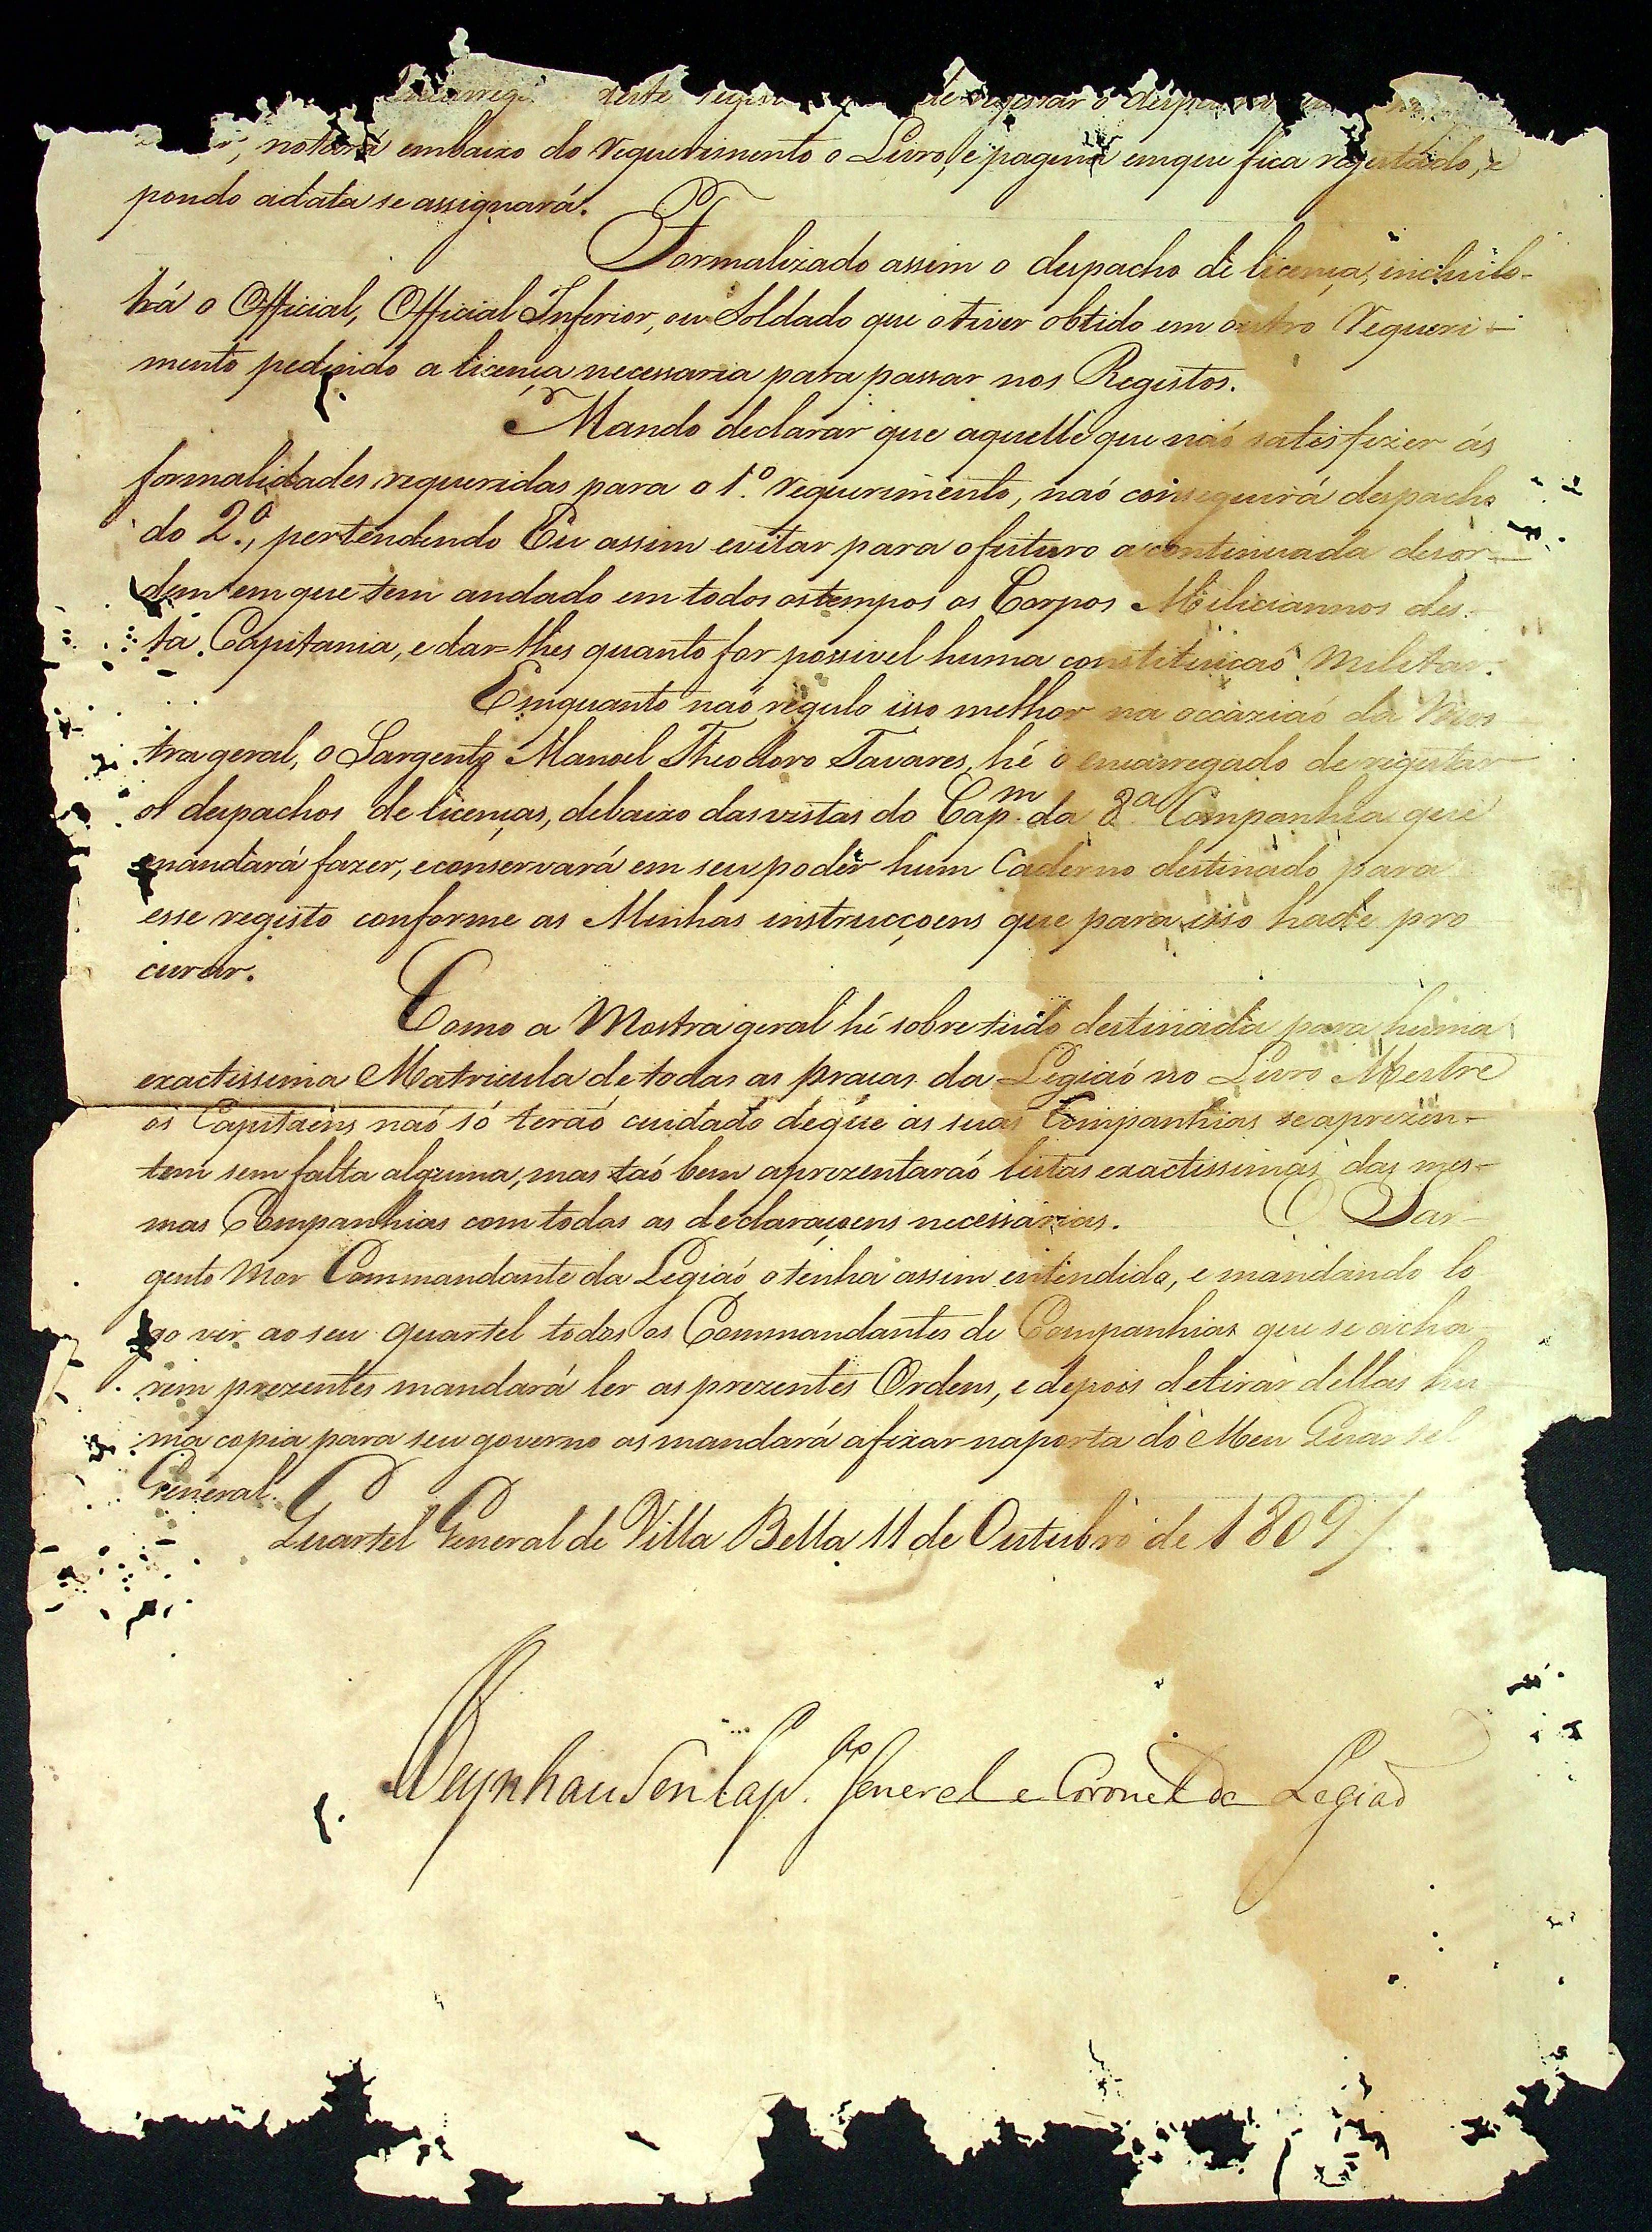 deste de registar o
notará embaixo do requerimento o Livro, e pagina emque fica registado, e
pondo adata se assignará.
Formalizado assim o despacho de licença, incluilo-
há o Official, Official Inferior, ou Soldado que otiver obtido em outro requeri-
mento pedindo a licença necessaria para passar nos Registos.
Mando declarar que aquelle que naó satisfizer ás
formalidades requeridas para o 1.º requerimento, naó conseguirá despacho
do 2.º, pertendendo Eu assim evitar para ofuturo acontinuada desor-
dem emque tem andado em todos ostempos os Corpos Miliciannos des-
ta Capitania, e dar=lhes quanto for possivel huma constituicaó Militar.
Emquanto naó regulo isso melhor na occaziaó da Mos
tra geral, o Sargento Manoel Theodoro Tavares, hé o encarregado de registar
os despachos de licenças, debaixo dasvistas do Cap.m da 3.a Companhia que
mandará fazer, econservará em seu poder hum Caderno destinado para
esse registo conforme as Minhas instrucçoens que para isso hade pro
curar.
Como a Mostra geral hé sobre tudo destinada para huma
exactissima Matricula de todas as praças da Legiaó no Livro Mestre
os Capitaens naó só teraó cuidado deque as suas Companhias se aprezen-
tem sem falta alguma, mas taó bem aprezentaraó listas exactissimas das mes-
mas Companhias com todas as declaraçoens necessarias. O Sar-
gento Mor Commandante da Legiaó otenha assim entendido, e mandando lo
go vir ao seu quartel todos os Commandantes de Companhias que se acha
rem prezentes mandará ler as prezentes Ordens, e depois detirar dellas hu
ma copia para seu governo as mandará afixar naporta do Meu Quartel
General.
Quartel General de Villa Bella 11 de Outubro de 1809/
Oeynhausen Cap.ão General e Coronel da Legiaõ